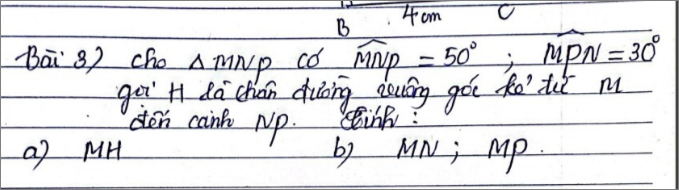 B 4cm C
Bài 3) cho Δ MNP có M̂NP = 50° ; M̂PN = 30°
gọi H là chân đường vuông góc kẻ từ M
đến cạnh NP. Tính :
a) MH b) MN ; MP.